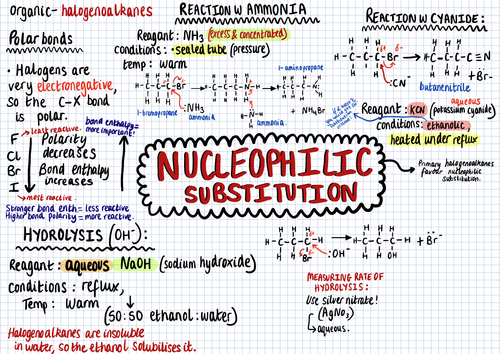 organic- halogenoalkanes
Polar bonds
• Halogens are
very electronegative,
so the C-X bond
is polar.
bond enthalpy=
more important!
→least reactive.
F
Cl
Br
I
Polarity
decreases
Bond enthalpy
increases
→most reactive.
Stronger bond enth= less reactive
Higher bond polarity= more reactive.
HYDROLYSIS (OH⁻):
Reagent: aqueous NaOH (sodium hydroxide)
conditions: reflux,
Temp: warm
(50:50 ethanol:water)
Halogenoalkanes are insoluble
in water, so the ethanol solubilises it.
REACTION W AMMONIA
Reagent: NH₃ (excess & concentrated)
conditions: •sealed tube (pressure)
temp: warm
H H H
H-C-C-C-Br
H H H
:NH₃
1-bromopropane
ammonia
H-N-H
ammonia
1-aminopropane
NH₄Br
NUCLEOPHILIC
SUBSTITUTION
REACTION W CYANIDE:
H H H
H-C-C-C-Br
H H H
:CN⁻
H H H
H-C-C-C-C≡N
H H H
butanenitrile
+Br⁻
Reagent: KCN (potassium cyanide)
aqueous
conditions: ethanolic
heated under reflux
Primary halogenoalkanes
favour nucleophilic
substitution.
H-C-C-C-C-H
Br
:OH⁻
H-C-C-C-C-H
OH
+ Br⁻
MEASURING RATE OF
HYDROLYSIS:
Use silver nitrate!
(AgNO₃)
→aqueous.